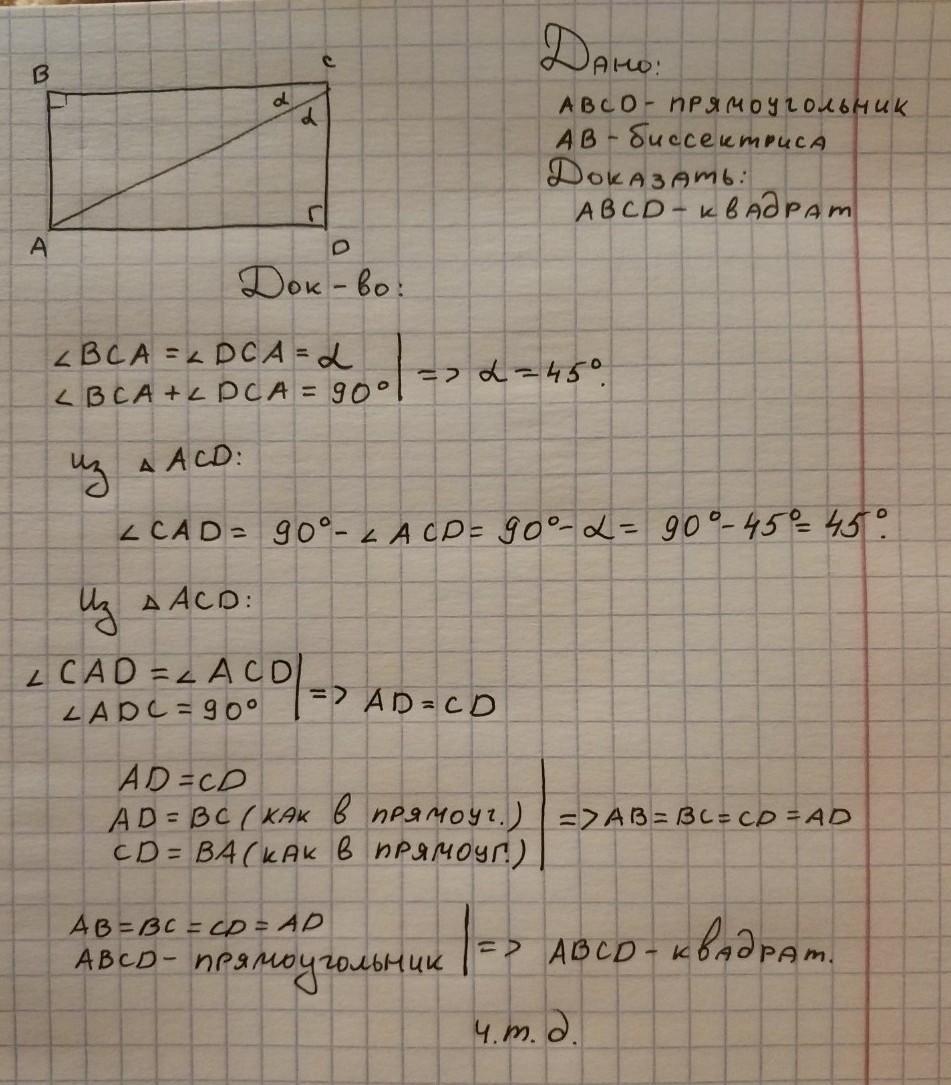 B C
α
α
A D
Дано:
ABCD - прямоугольник
AB - биссектриса
Доказать:
ABCD - квадрат
Док-во:
∠BCA = ∠DCA = α
∠BCA + ∠DCA = 90° => α = 45°.
Из △ACD:
∠CAD = 90° - ∠ACD = 90° - α = 90° - 45° = 45°.
Из △ACD:
∠CAD = ∠ACD
∠ADC = 90° => AD = CD
AD = CD
AD = BC (как в прямоуг.) => AB = BC = CD = AD
CD = BA (как в прямоуг.)
AB = BC = CD = AD
ABCD - прямоугольник => ABCD - квадрат.
ч.т.д.